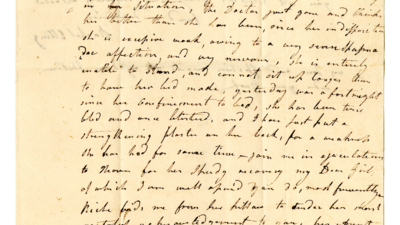 in my Situation, the Doctor just gone and thinks
her better than she has been, since her indisposition
she is excessive weak, owing to a very severe Spasmo
dic affection, and very nervous, she is entirely
unable to stand, and cannot sit up longer than
to have her bed made, yesterday was a fortnight
since her confinement to bed, she has been twice
bled and once blistered, and I have just put a
strengthening plaster on her back, for a weakness
she has had for some time – join me in ejaculations
to Heaven for her speedy recovery my Dear Girl,
of which I am well assured you do, most fervently
bids me from her pillow to tender her most
grateful acknowledgement to